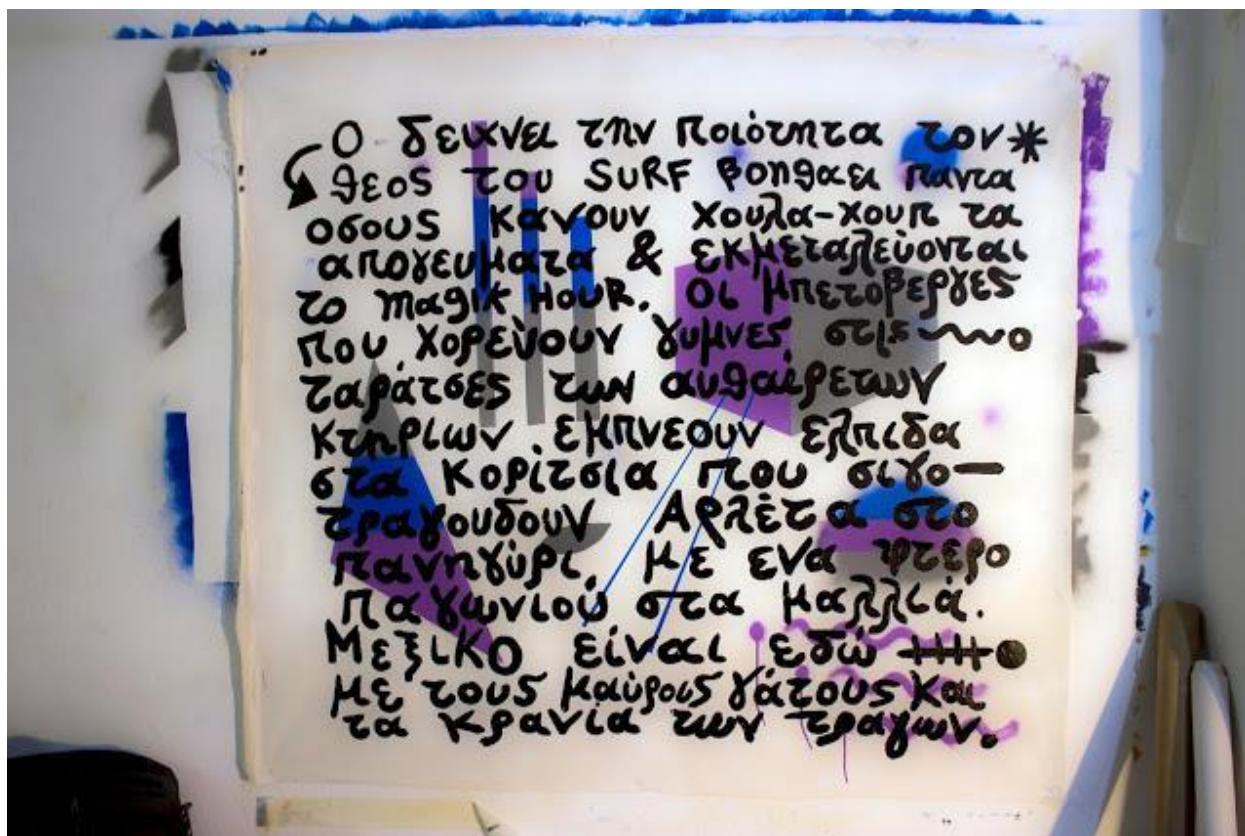 Ο δειχνει την ποιότητα τον*
θεος του SURF βοηθαει παντα
οσους κανουν χουλα-χουπ τα
απογευματα & εκμεταλεύονται
το magik HOUR. Οι μπετοβεργες
που χορεύουν γυμνες στις
ταράτσες των αυθαίρετων
κτηρίων εμπνεουν ελπιδα
στα κορίτσια που σιγο-
τραγουδουν Αρλέτα στο
πανηγύρι με ενα φτερο
παγωνιού στα μαλλιά.
Μεξικο είναι εδώ
με τους μαύρους γάτους και
τα κρανία των τραγων.